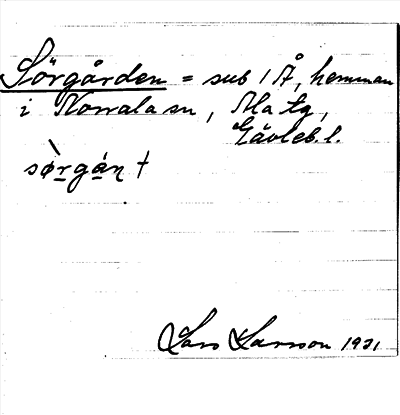 Sörgården = sub 1 Å, hemman
i Norrala sn, Ala tg,
Gävleb. l.
sø̀rgán †
Lars Larsson 1921